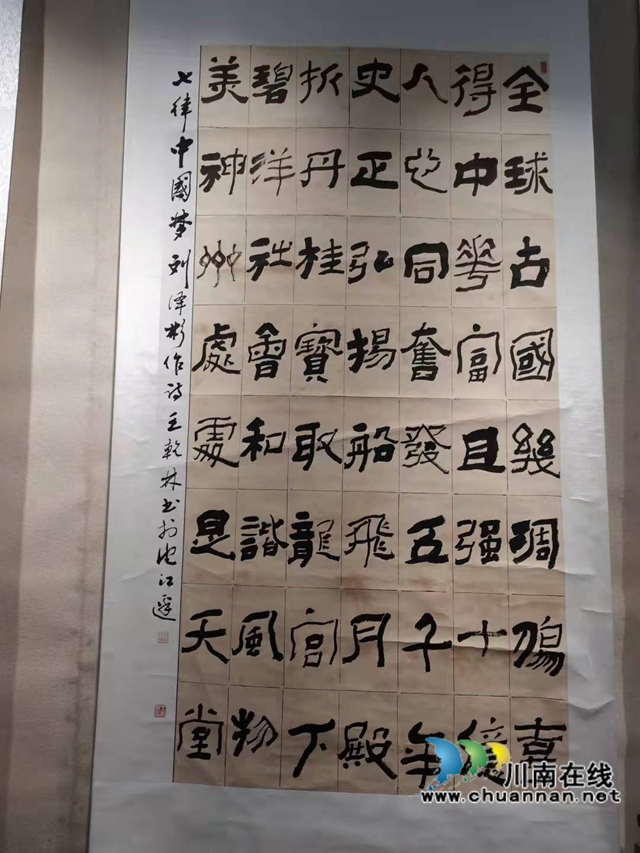 全球古國幾凋殤喜
得中華富且强十億
人心同奮發五千年
史正弘揚船飛月殿
折丹桂寶取龍宮下
碧洋社會和諧風物
美神州處處是天堂
七律中國梦刘泽彬作诗王乾林书於沱江邊
川南在线
www.chuannan.net